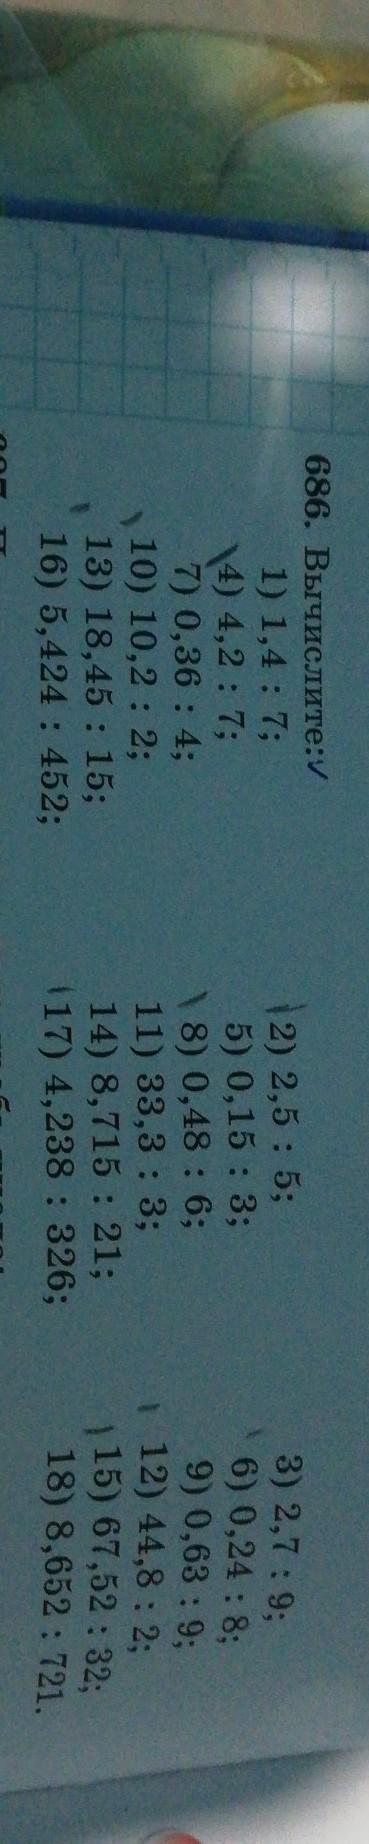 686. Вычислите:
1) 1,4 : 7; 2) 2,5 : 5; 3) 2,7 : 9;
4) 4,2 : 7; 5) 0,15 : 3; 6) 0,24 : 8;
7) 0,36 : 4; 8) 0,48 : 6; 9) 0,63 : 9;
10) 10,2 : 2; 11) 33,3 : 3; 12) 44,8 : 2;
13) 18,45 : 15; 14) 8,715 : 21; 15) 67,52 : 32;
16) 5,424 : 452; 17) 4,238 : 326; 18) 8,652 : 721.